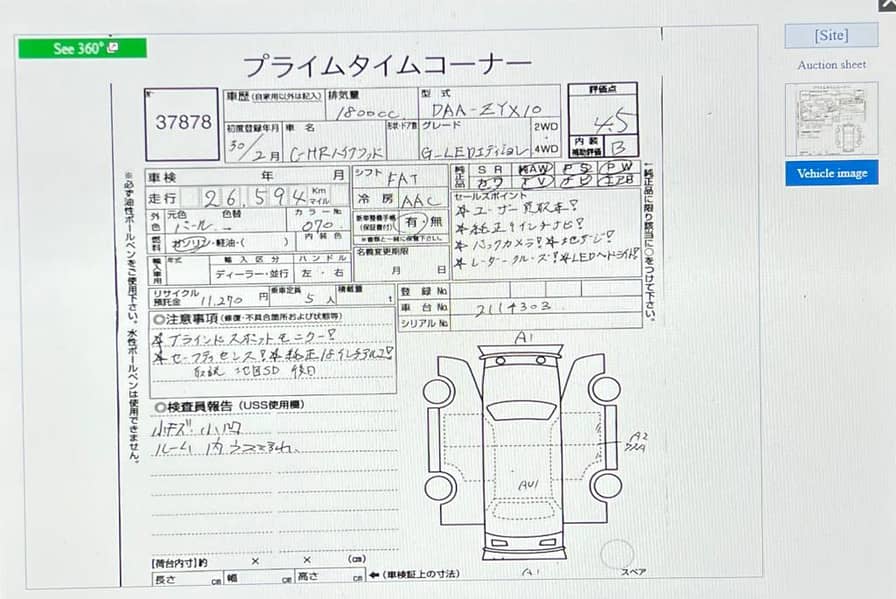 See 360°
[Site]
Auction sheet
Vehicle image
プライムタイムコーナー
37878
車歴 (自家用以外は記入)
排気量
1800cc
型式
DAA-ZYX10
評価点
4.5
初度登録年月
30/2月
車名
C-HRハイブリッド
形状・ドア数
グレード
G-LEDエディション
2WD
・
4WD
内装
補助評価
B
車検 年 月
シフト
FAT
純正品
SR 純AW PS PW
カワ TV ナビ エアB
走行
26,594
Km
マイル
冷房
AAC
セールスポイント
*ユーザー買取車!
*純正9インチナビ!
*バックカメラ!*地デジ!
*レーダークルーズ!*LEDヘッドライト!
外色
元色
パール
色替
カラーNo
070
内装色
新車整備手帳
(保証書付)
有・無
※書類と一緒に保管下さい。
燃料
ガソリン・軽油・( )
名義変更期限
月 日
輸入車用
年式
輸入区分
ディーラー・並行
ハンドル
左・右
リサイクル
預託金
11,270円
乗車定員
5人
積載量
t
登録No
車台No
2114303
シリアルNo
◎注意事項(修復・不具合箇所および状態等)
*ブラインドスポットモニター!
*セーフティセンス!*純正18インチアルミ!
取説 地図SD 後日
◎検査員報告 (USS使用欄)
小キズ、小凹
ルーム内ウス汚れ
A1
A2
AU1
A1
スペア
[荷台内寸]約 × × (cm)
長さ cm 幅 cm 高さ cm
←(車検証上の寸法)
※必ず油性ボールペンをご使用下さい。水性ボールペンは使用できません。
←純正品に限り該当に○をつけて下さい。